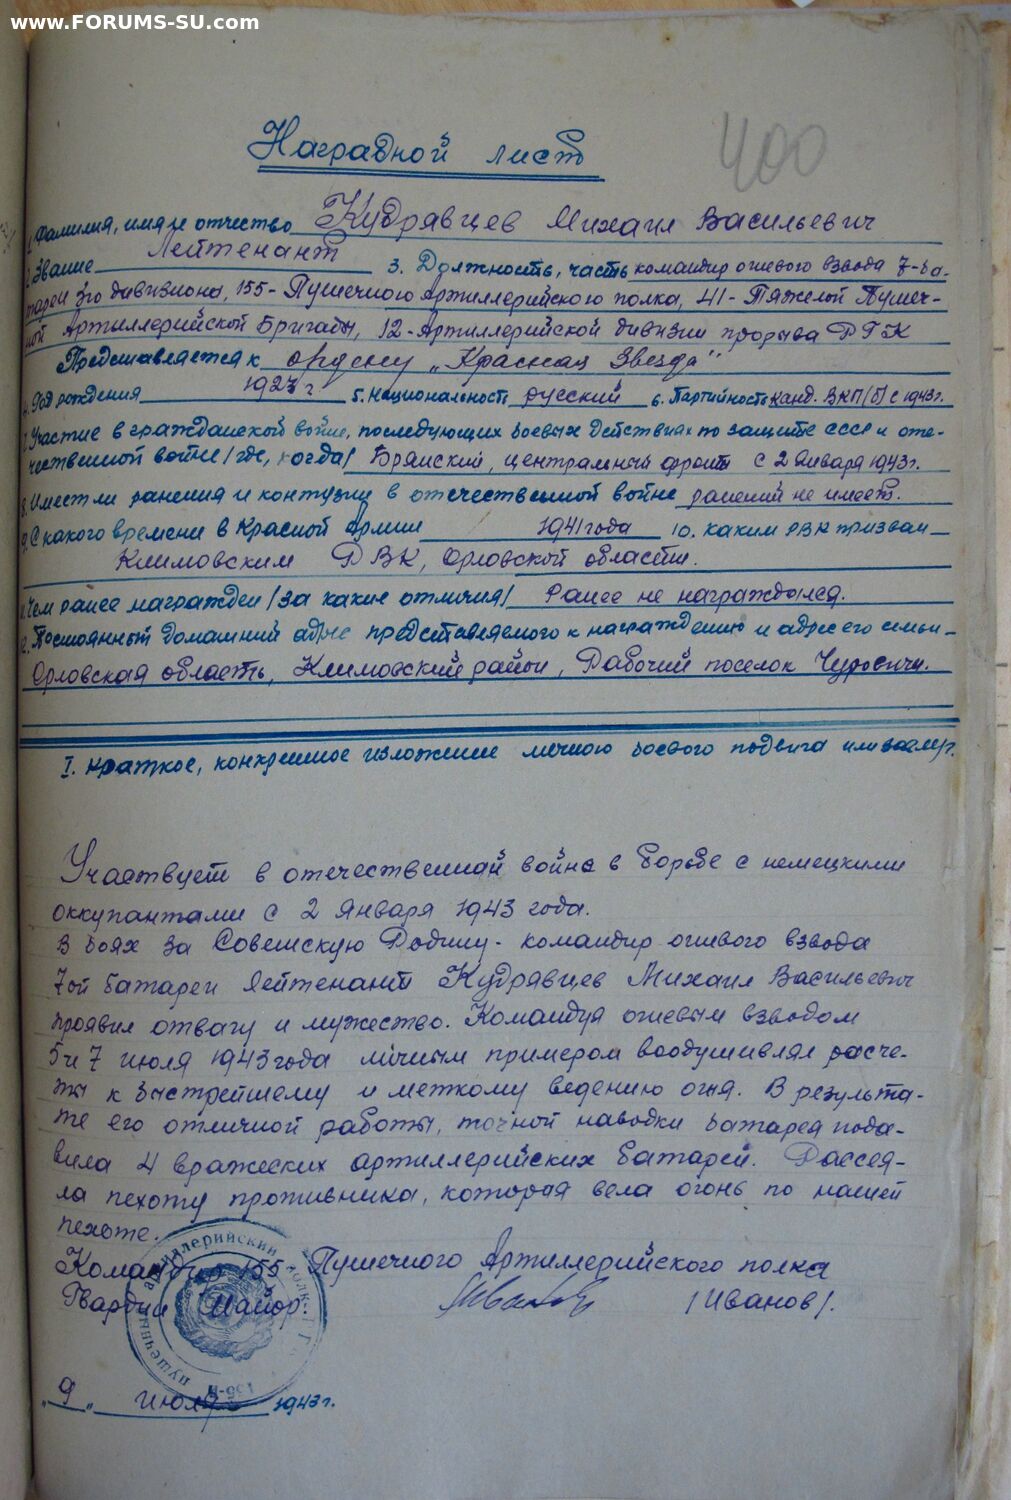 www.FORUMS-SU.com
400
Наградной лист
1. Фамилия, имя и отчество Кудрявцев Михаил Васильевич
2. Звание Лейтенант 3. Должность, часть командир огневого взвода 7-ба-
тареи 3го дивизиона, 155-Пушечного Артиллерийского полка, 41-Тяжелой Пушеч-
ной Артиллерийской Бригады, 12-Артиллерийской дивизии прорыва РГК
Представляется к ордену „Красная Звезда"
4. Год рождения 1923 г 5. Национальность русский 6. Партийность канд. ВКП/б/ с 1943г.
7. Участие в гражданской войне, последующих боевых действиях по защите СССР и оте-
чественной войне /где, когда/ Брянский, центральный фронты с 2 Января 1943г.
8. Имеет ли ранения и контузии в отечественной войне ранений не имеет.
9. С какого времени в Красной Армии 1941 года 10. каким РВК призван —
Климовским РВК, Орловской области.
11. Чем ранее награжден /за какие отличия/ Ранее не награждался.
12. Постоянный домашний адрес представляемого к награждению и адрес его семьи —
Орловская область, Климовский район, Рабочий поселок Чуровичи.
I. Краткое, конкретное изложение личного боевого подвига или заслуг.
Участвует в отечественной войне в борьбе с немецкими
оккупантами с 2 Января 1943 года.
В боях за Советскую Родину - командир огневого взвода
7ой батареи Лейтенант Кудрявцев Михаил Васильевич
проявил отвагу и мужество. Командуя огневым взводом
5 и 7 июля 1943 года личным примером воодушевлял расче-
ты к быстрейшему и меткому ведению огня. В результа-
те его отличной работы, точной наводки батарея пода-
вила 4 вражеских артиллерийских батарей. Рассея-
ла пехоту противника, которая вела огонь по нашей
пехоте.
Командир 155 Пушечного Артиллерийского полка
Гвардии Майор Иванов /Иванов/.
пушечный артиллерийский полк
„9„ июля 1943г.